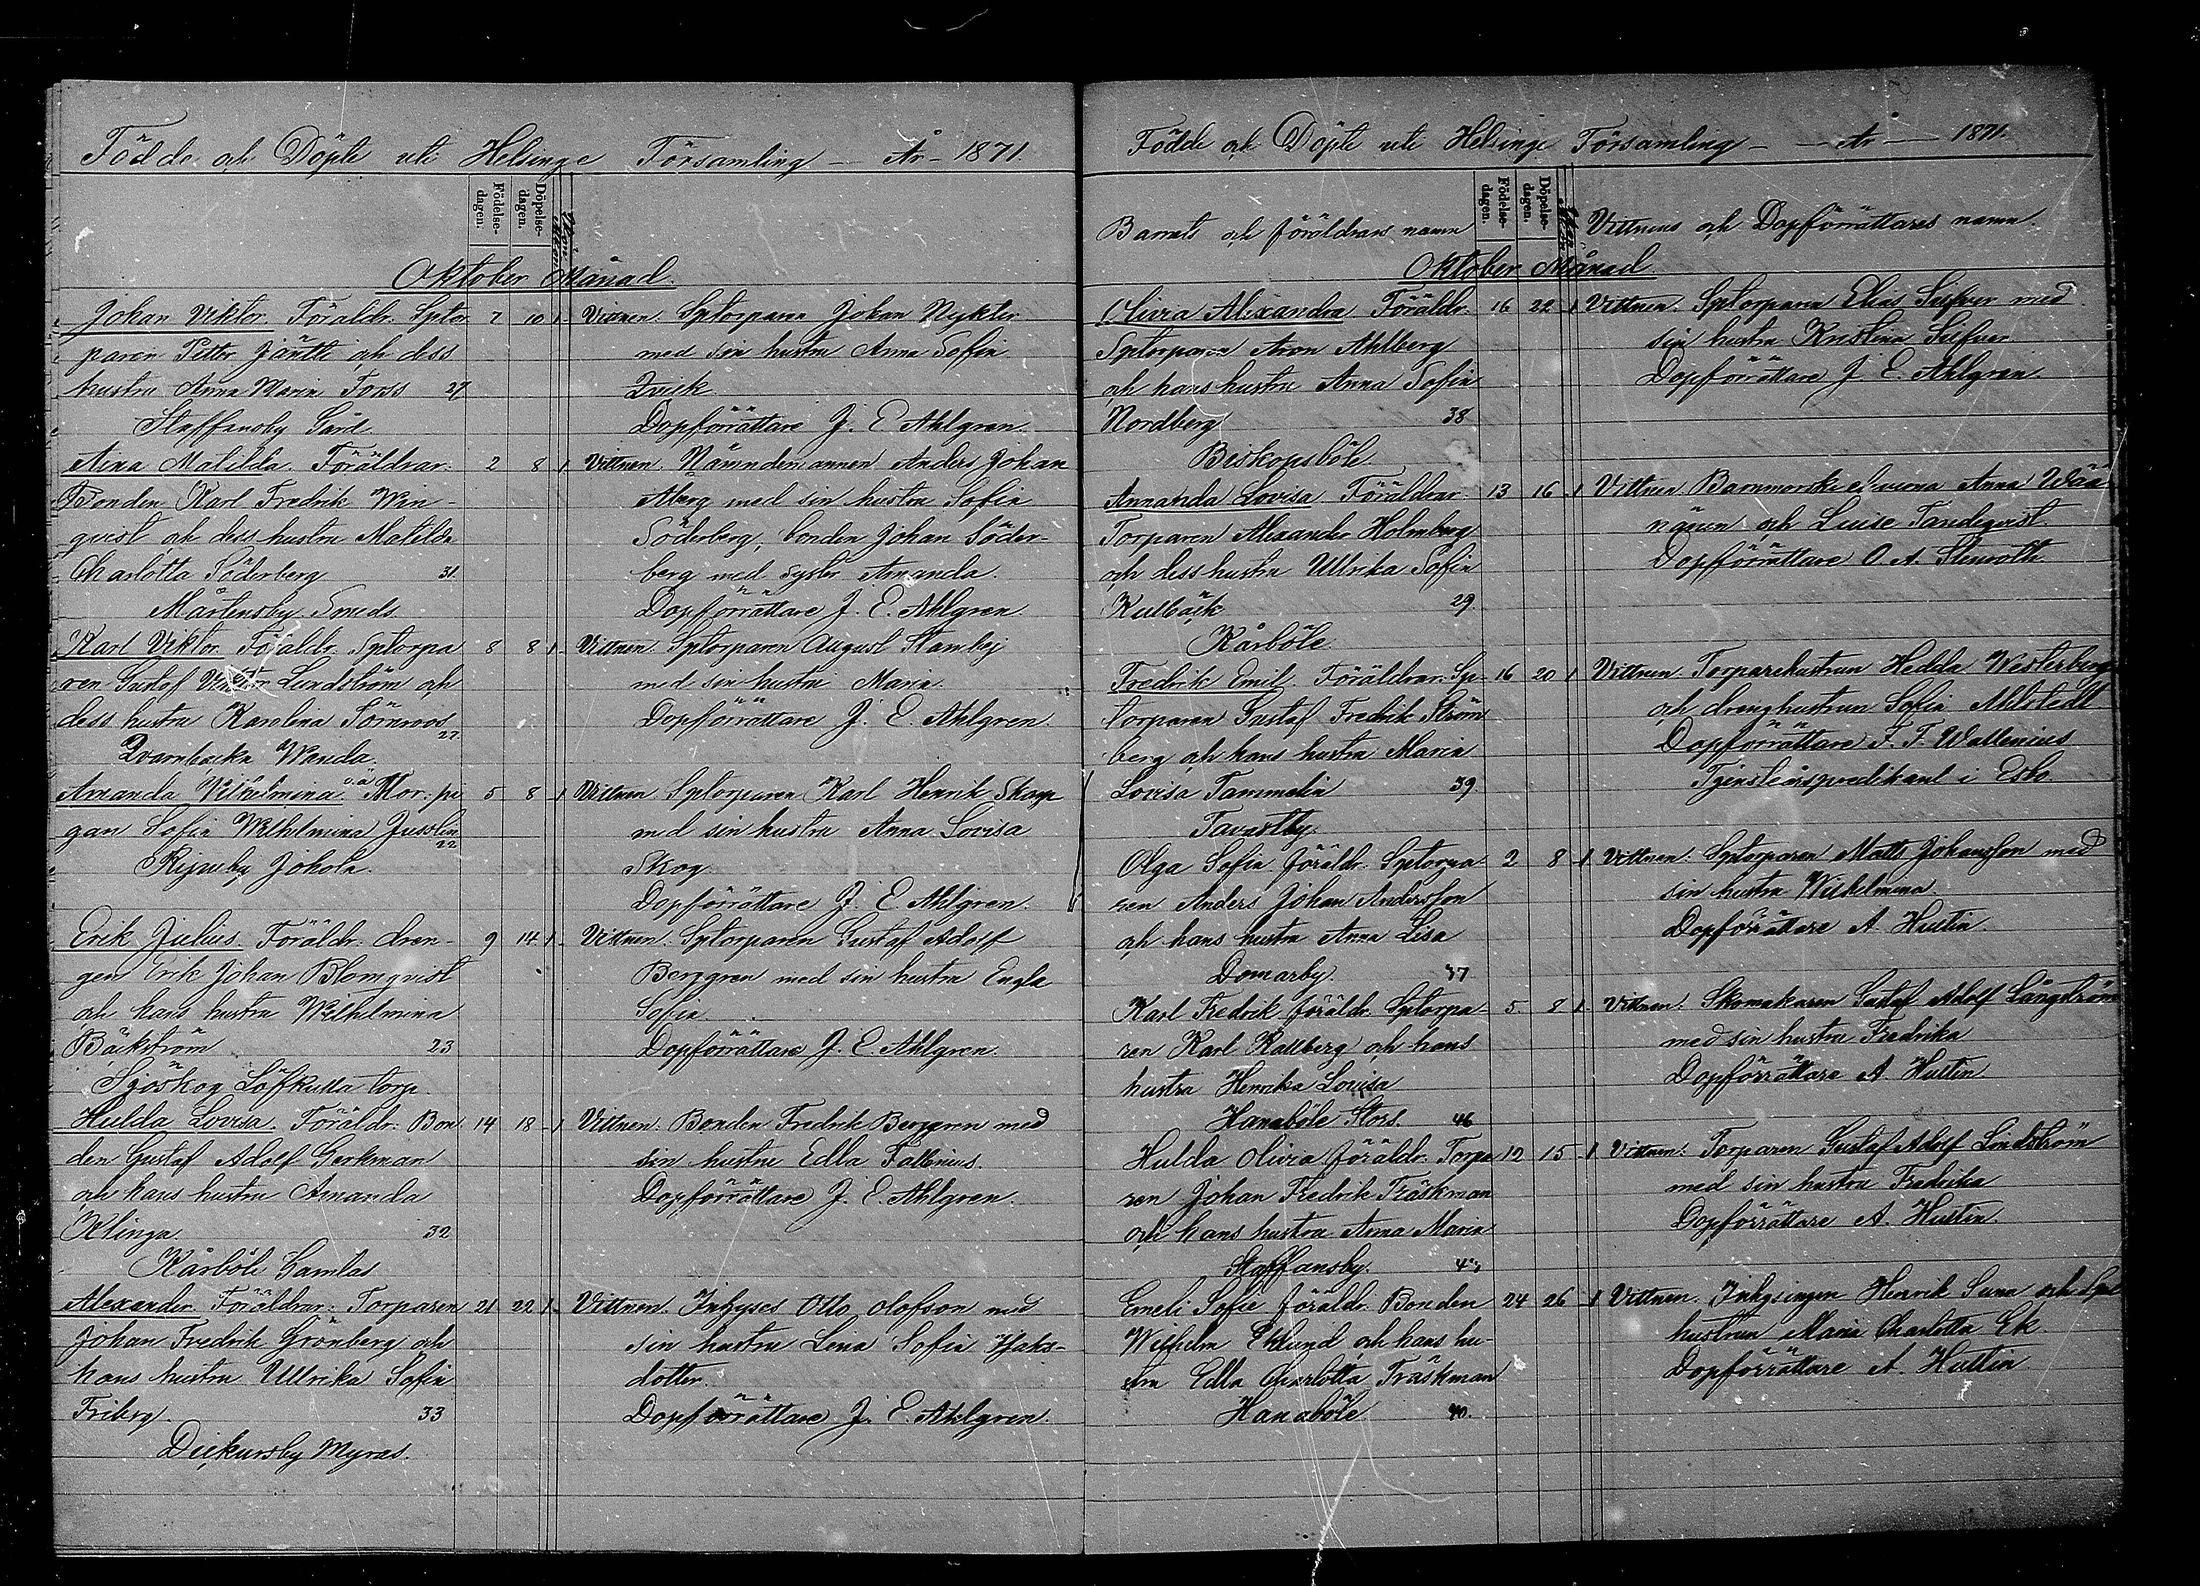 Födde och Döpte uti Helsinge Församling — År - 1871.
Födelse-dagen. Döpelse-dagen.
Oktober Månad.
Johan Viktor. Föräldr. Sptor 7 10 1 Vittnen. Sptorparen Johan Nykter
paren Petter Jäntti och dess med sin hustru Anna Sofia
hustru Anna Maria Forss 27 Qvick
Staffansby Gård Dopförrättare J. E. Ahlgren.
Aina Matilda. Föräldrar: 2 8 1 Vittnen. Nämndemannen Anders Johan
Bonden Karl Fredrik Win- Åberg med sin hustru Sofia
qvist och dess hustru Matilda Söderberg, bonden Johan Söder-
Charlotta Söderberg 31. berg med syster Amanda.
Mårtensby Smeds Dopförrättare J. E. Ahlgren.
Karl Viktor. Föräldr. Sptorpa 8 8 1 Vittnen. Sptorparen August Stambej
ren Gustof Lundström och med sin hustru Maria.
dess hustru Karolina Törnroos 27. Dopförrättare J. E. Ahlgren.
Qvarnbacka Wanda.
Amanda Vilhelmina. o.ä. Mor: pi 5 8 1 Vittnen Sptorparen Karl Henrik Skog
gan Sofia Wilhelmina Jusslin 22 med sin hustru Anna Lovisa
Ripuby Jokola. Skog
Dopförrättare J. E. Ahlgren.
Erik Julius. Föräldr. dren- 9 14 1 Vittnen. Sptorparen Gustaf Adolf
gen Erik Johan Blomqvist Berggren med sin hustru Engla
och hans hustru Wilhelmina Sofia
Bäckström 23 Dopförrättare J. E. Ahlgren.
Sjöskog Löfkulla torp.
Hulda Lovisa. Föräldr: Bon 14 18 1 Vittnen. Bonden Fredrik Berggren med
den Gustaf Adolf Gerkman sin hustru Edla Fallenius.
och hans hustru Amanda Dopförrättare J. E. Ahlgren.
Klinga. 32
Kårböle Gamlas
Alexander. Föräldrar: Torparen 21 22 1 Vittnen. Inhyses Otto Olofson med
Johan Fredrik Grönberg och sin hustru Lena Sofia Isaks-
hans hustru Ullrika Sofia dotter.
Friberg. 33 Dopförrättare J. E. Ahlgren.
Dickursby Myras.
Födde och Döpte uti Helsinge Församling — — År — 1871.
Barnets och föräldrars namn Födelse-dagen. Döpelse-dagen. Vittnens och Dopförrättares namn.
Oktober Månad.
Olivia Alexandra Föräldr. 16 22 1 Vittnen. Sptorparen Elias Silfver med
Sptorparen Aron Ahlberg sin hustru Kristina Silfver
och hans hustru Anna Sofia Dopförrättare J. E. Ahlgren.
Nordberg 38
Biskopsböle.
Amanda Lovisa Föräldrar. 13 16 1 Vittnen Barnmorske Anna Wää
Torparen Alexander Holmberg nänen och Luise Tandeqvist.
och dess hustru Ullrika Sofia Dopförrättare O. A. Stenroth.
Kulbäck 29.
Kårböle
Fredrik Emil. Föräldrar: Sp- 16 20 1 Vittnen. Torparehustrun Hedda Westerberg
torparen Gustaf Fredrik Ström och drenghustrun Sofia Ahlstedt
berg och hans hustru Maria Dopförrättare F. T. Wallenius
Lovisa Tammelin 39 Tjensteårspredikant i Esbo
Tavastby.
Olga Sofia föräldr. Sptorpa- 2 8 1 Vittnen: Sptorparen Matts Johansson med
ren Anders Johan Andersson sin hustru Wilhelmina.
och hans hustru Anna Lisa Dopförrättare A. Hustin
Domarby. 37
Karl Fredrik föräldr. Sptorpa- 5 8 1. Vittnen: Skomakaren Gustaf Adolf Långström
ren Karl Kallberg och hans med sin hustru Fredrika
hustru Henrika Lovisa Dopförrättare A. Hustin
Hanaböle Stors. 46
Hulda Olivia föräldr. Torpa 12 15 1 Vittnen: Torparen Gustaf Adolf Lindström
ren Johan Fredrik Träskman med sin hustru Fredrika
och hans hustru Anna Maria Dopförrättare A. Hustin.
Staffansby.
Emeli Sofie föräldr. Bonden 24 26 1 Vittnen. Inhysingen Henrik Suna och
Wilhelm Eklund och hans hu- hustrun Maria Charlotta Ek.
stru Edla Charlotta Träskman Dopförrättare A. Hustin
Hanaböle 40.